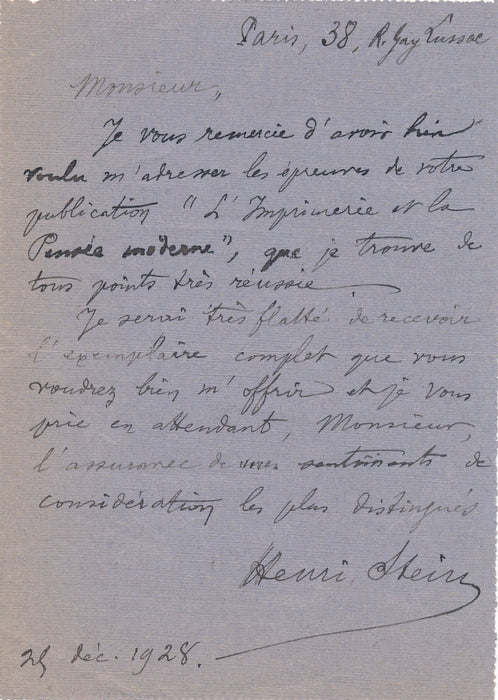 Paris, 38, R. Gay Lussac
Monsieur,
Je vous remercie d'avoir bien
voulu m'adresser les épreuves de votre
publication "L'Imprimerie et la
Pensée moderne", que je trouve de
tous points très réussie.
Je serai très flatté de recevoir
l'exemplaire complet que vous
voudrez bien m'offrir et je vous
prie en attendant, Monsieur,
l'assurance de mes sentiments de
considération les plus distingués
Henri Stein
déc. 1928.